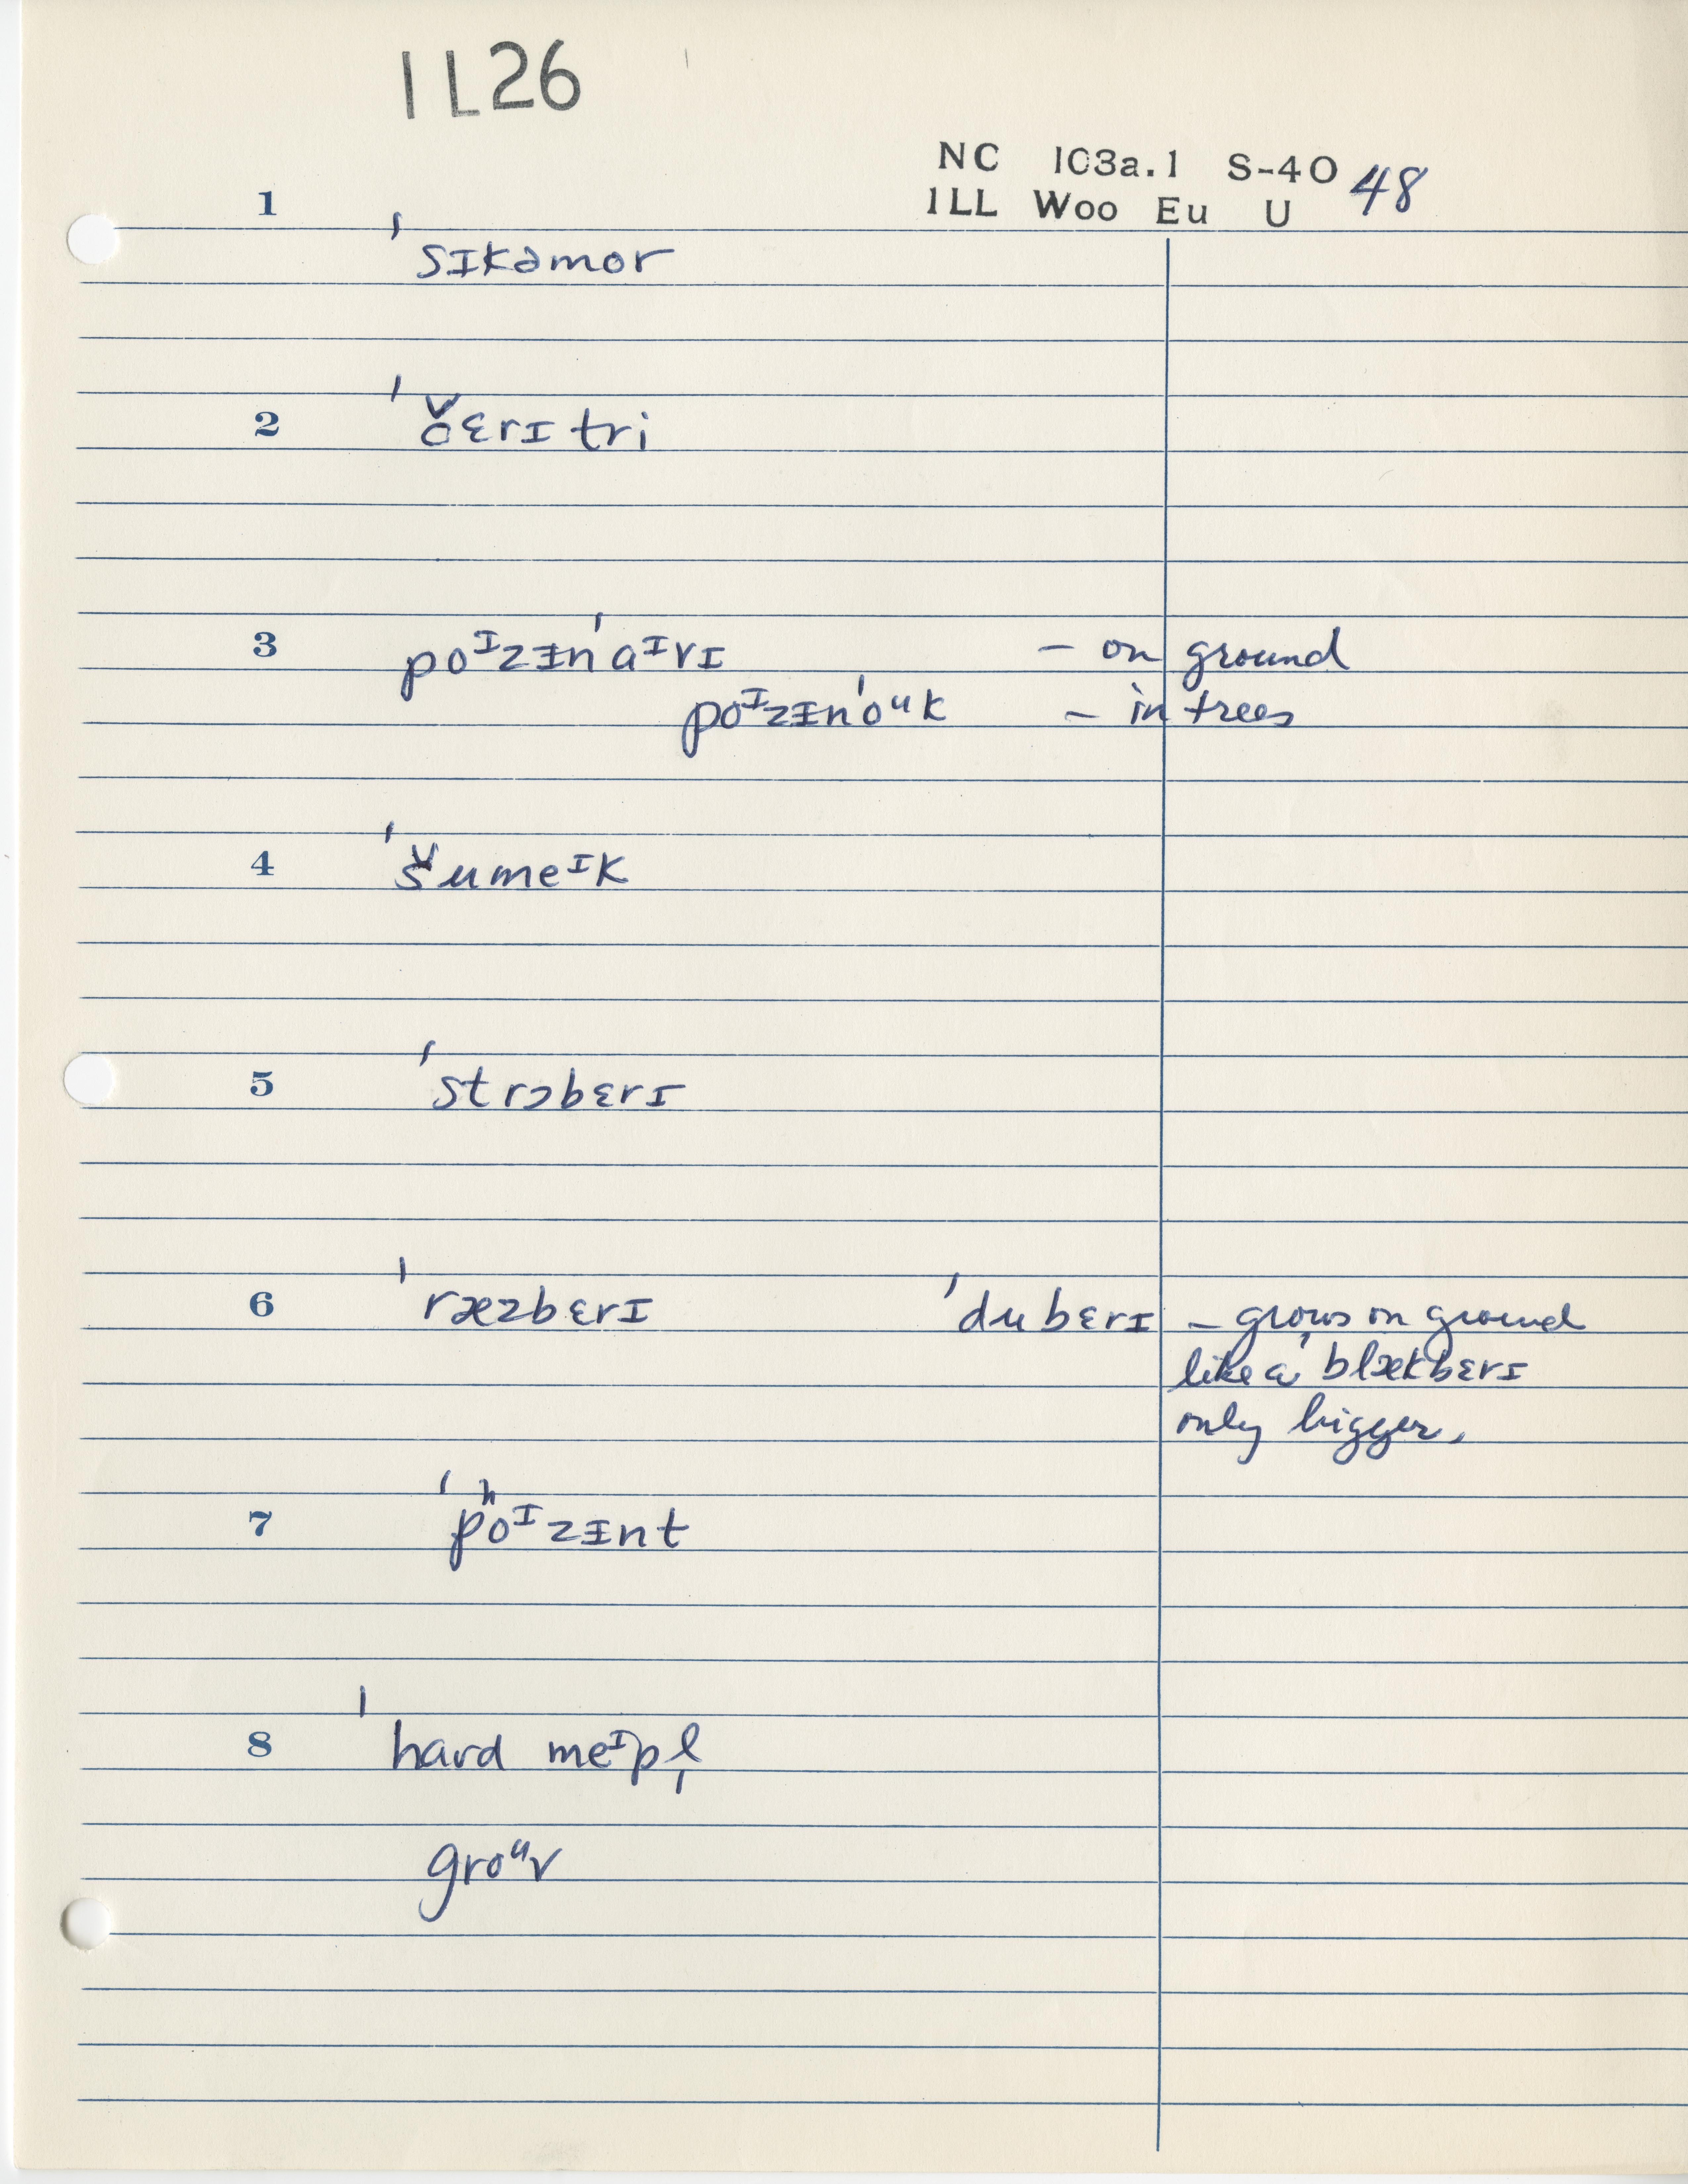 IL26
NC 103a.1 S-40 48
ILL Woo Eu U
1 ˈsɪkəmor
2 ˈčɛrɪ tri
3 poᶦzᵻnˈaᶦvɪ – on ground
poᶦzᵻnˈoᵘk – in trees
4 ˈšumeᶦk
5 ˈstrɔbɛrɪ
6 ˈræzbɛrɪ ˈdubɛrɪ – grows on ground
like a ˈblækbɛrɪ
only bigger.
7 ˈpʰoᶦzᵻnt
8 ˈhard meᶦpl̩
groᵘv